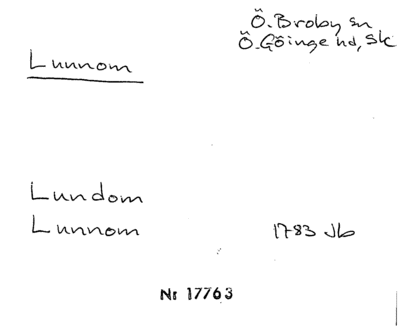 Ö. Broby sn
Ö. Göinge hd, Sk
Lunnom
Lundom
Lunnom 1783 Jb
Nr 17763